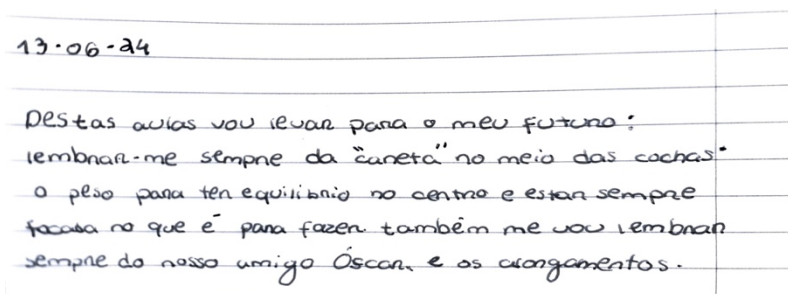 13.06-24
Destas aulas vou levar para o meu futuro:
lembrar-me sempre da "caneta" no meio das cochas.
o peso para ter equilibrio no centro e estar sempre
focada no que é para fazer também me vou lembrar
sempre do nosso amigo Óscar, e os alongamentos.